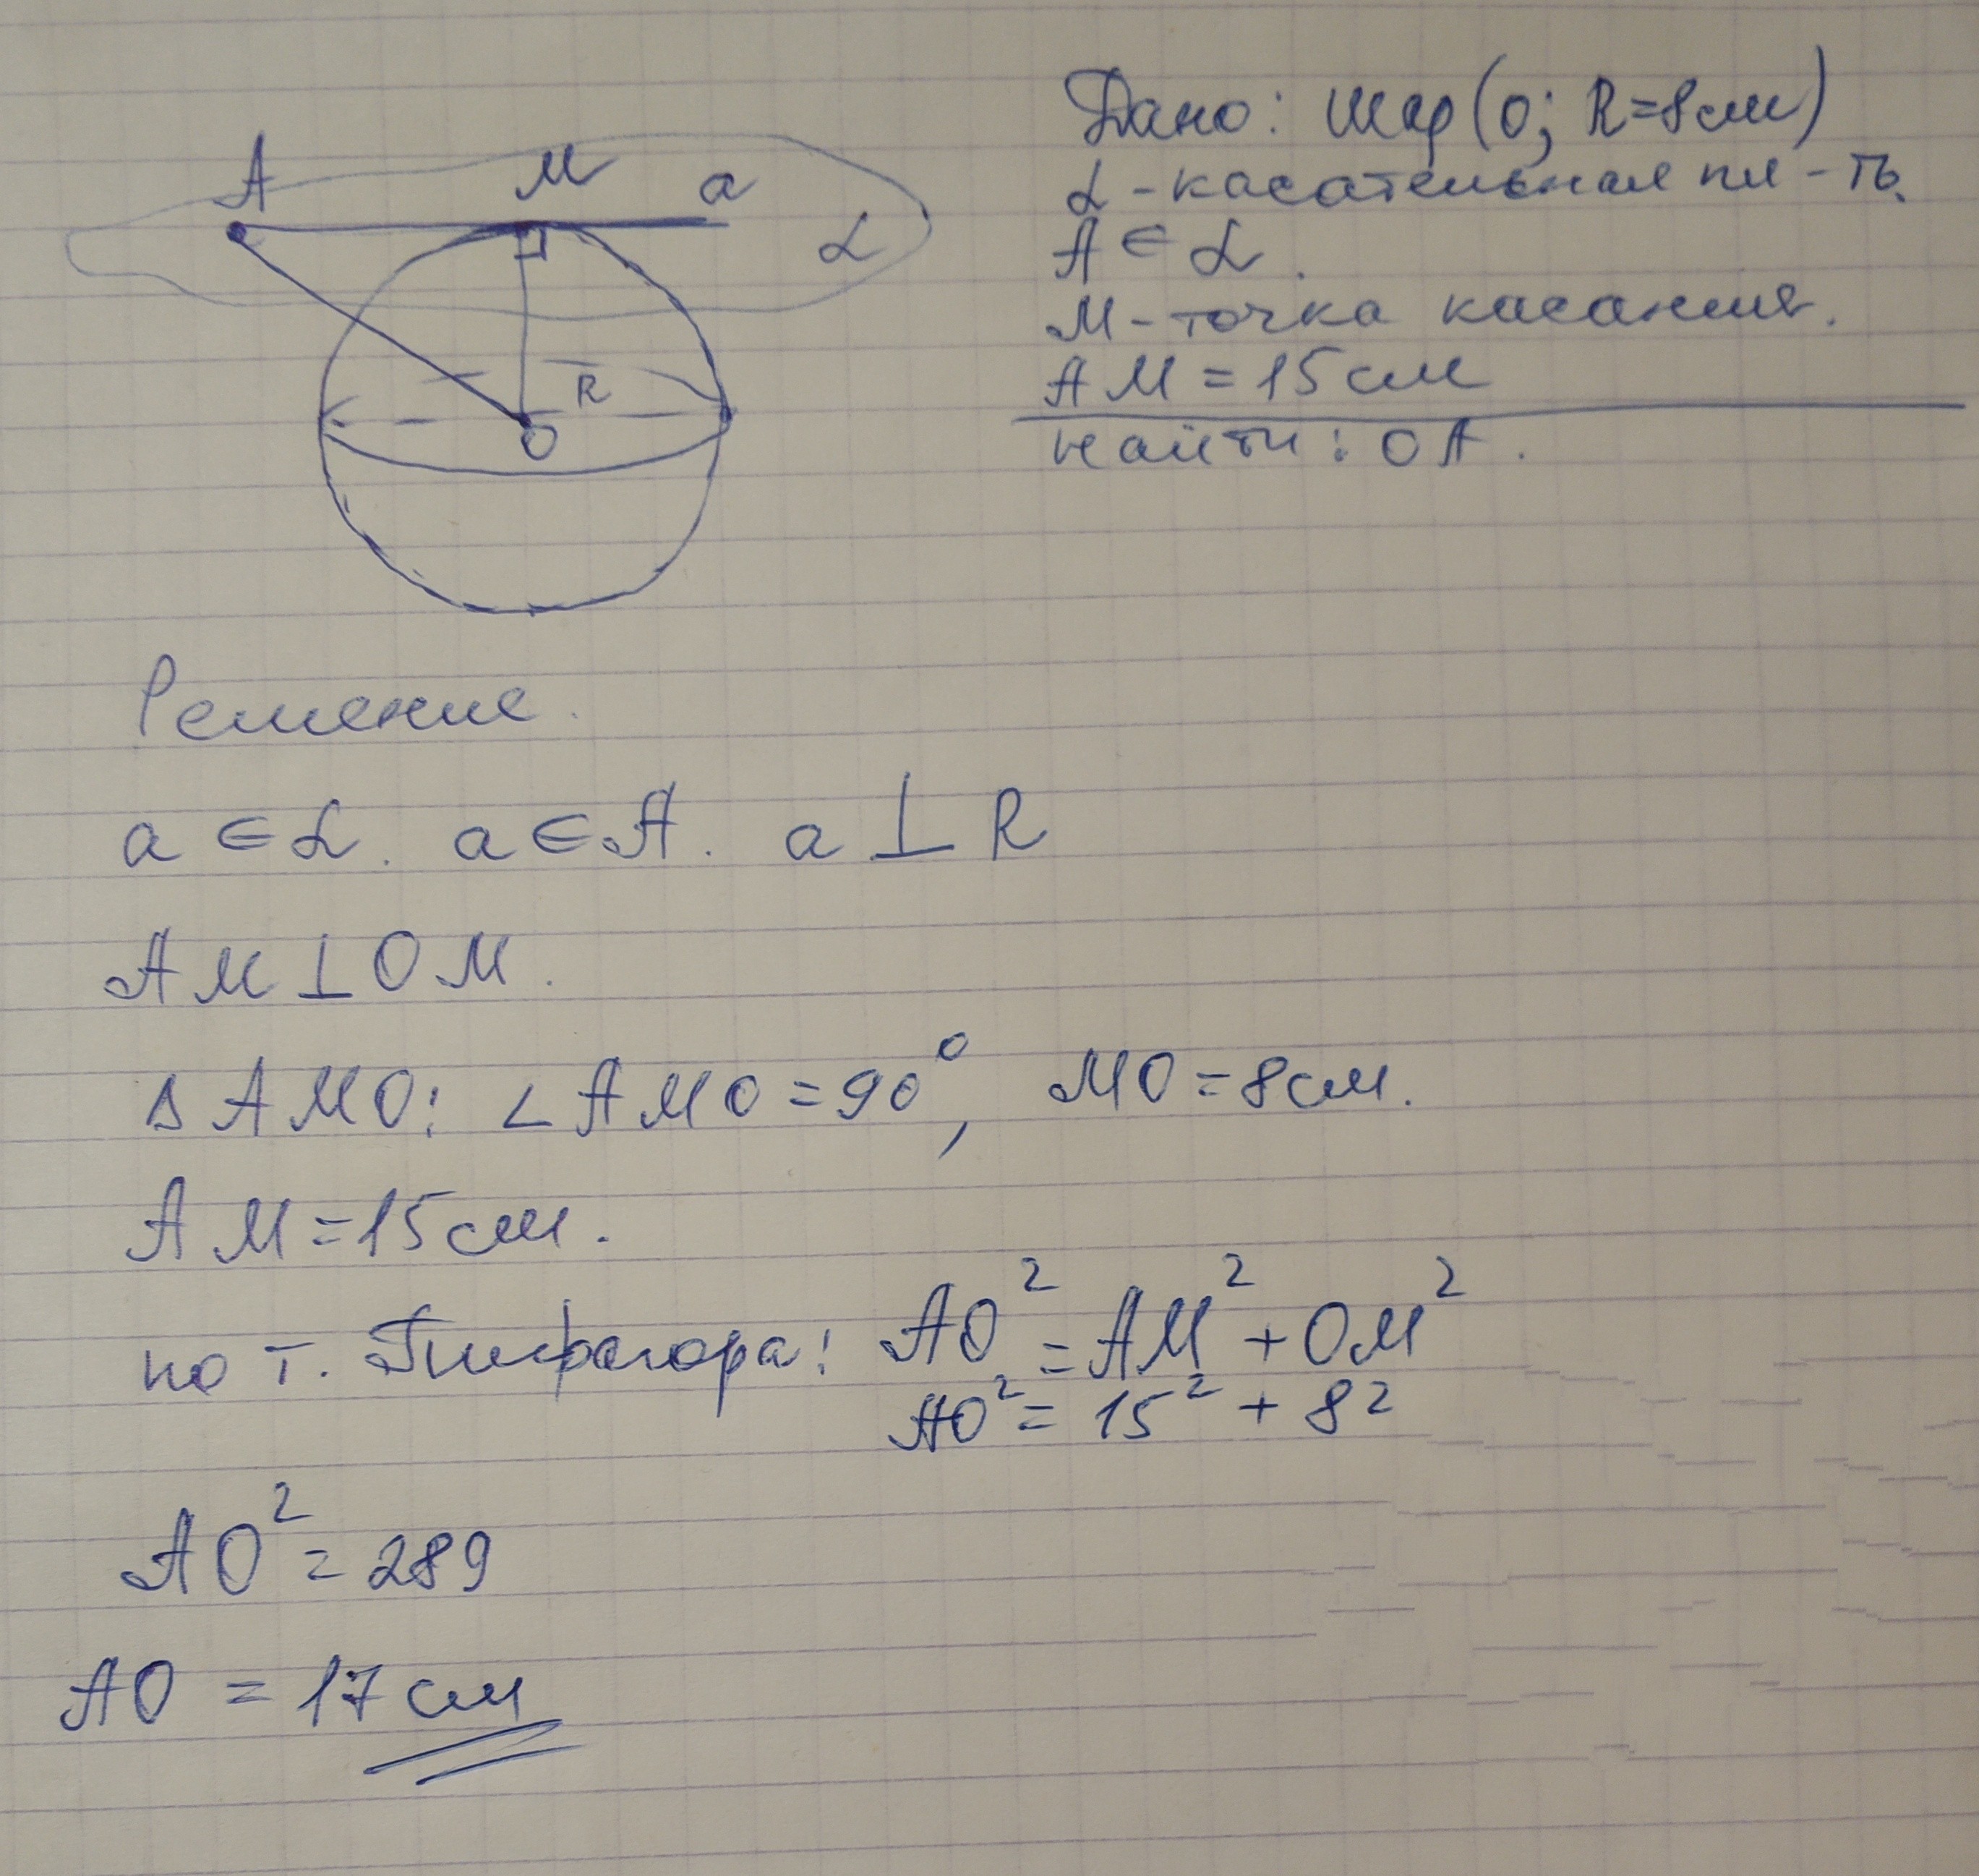 A M a
α
R
O
Дано: шар (O; R=8см)
α-касательная пл-ть.
A ∈ α.
M-точка касания.
AM = 15см
найти: OA.
Решение.
a ∈ α. a ∈ A. a ⊥ R
AM ⊥ OM.
Δ AMO: ∠AMO = 90°, MO = 8см.
AM = 15см.
по т. Пифагора: AO² = AM² + OM²
AO² = 15² + 8²
AO² = 289
AO = 17 см